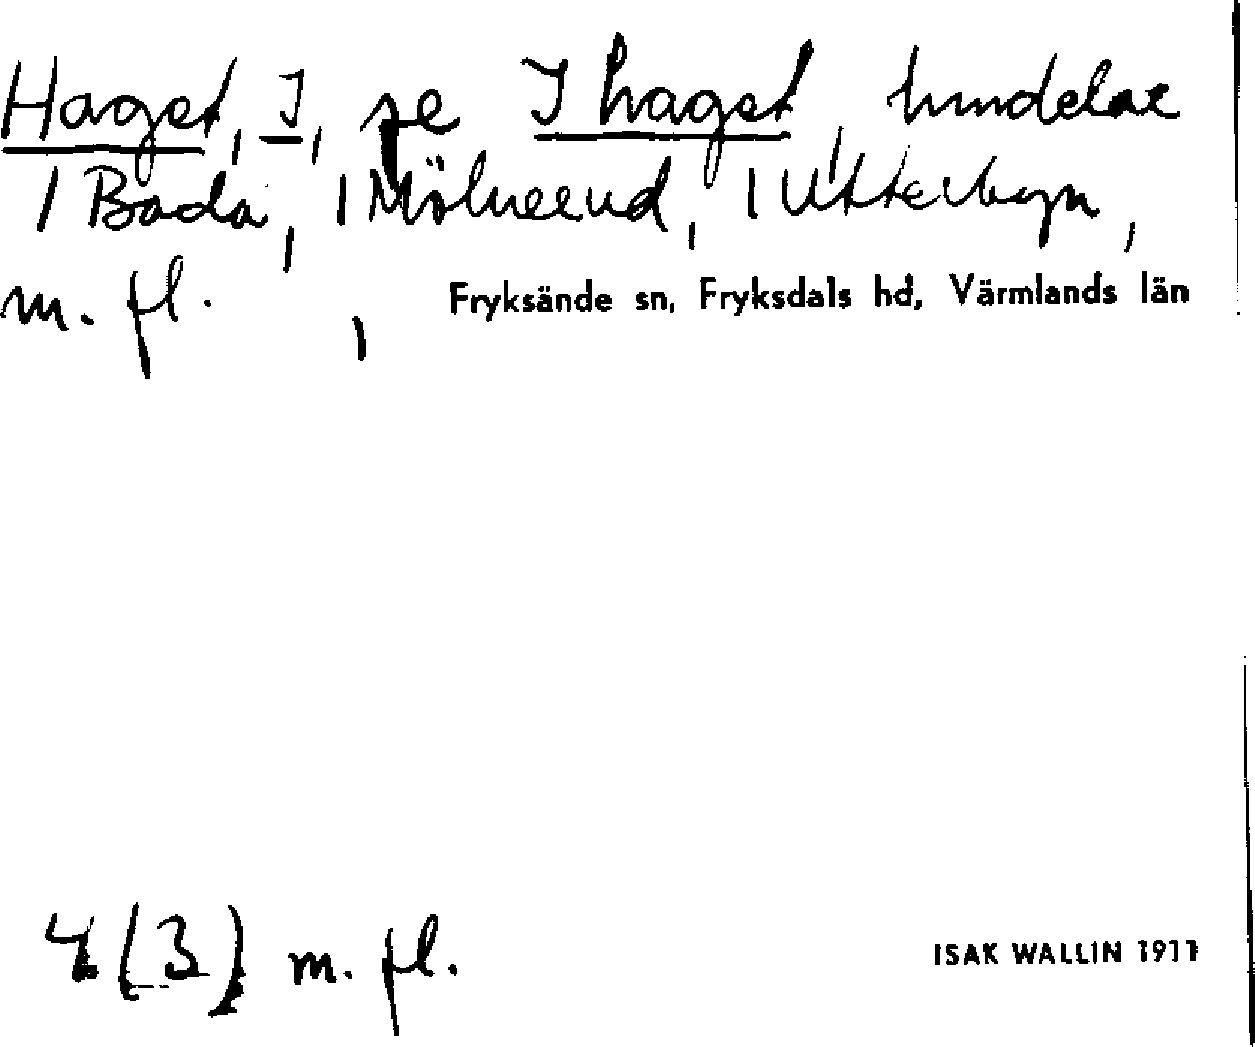 Haget, I, se I haget, hmdelar
i Bada, i Mölnerud, i Utterbyn,
m. fl. , Fryksände sn, Fryksdals hd, Värmlands län
4 (3) m. fl.
ISAK WALLIN 1911